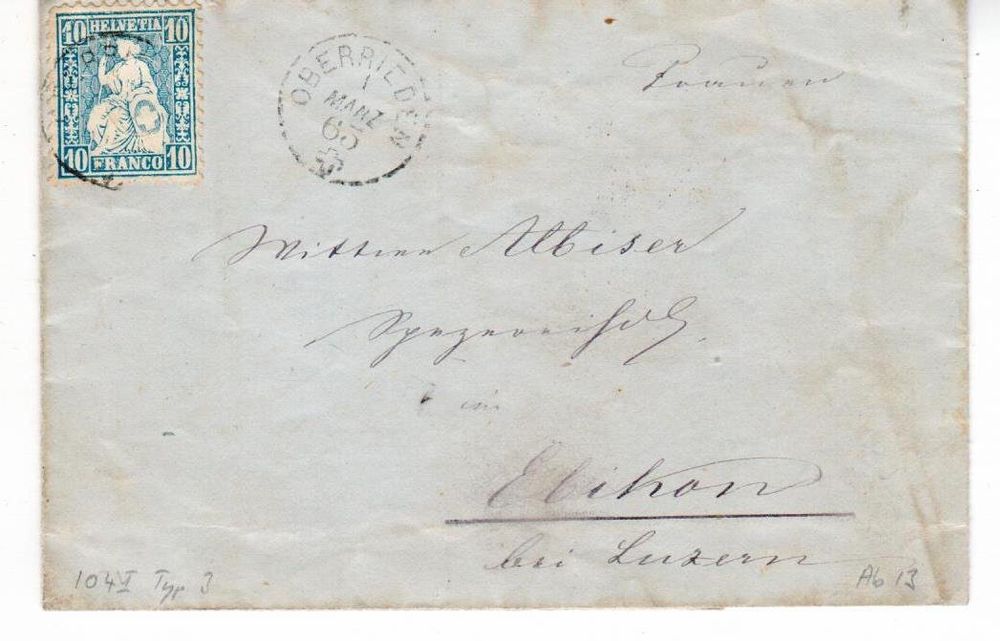 10 HELVETIA 10
10 FRANCO 10
OBERRIEDEN
1
MÄRZ
65
Frauen
Wittwe Albiser
Spezereihdlg.
in
Ebikon
bei Luzern
104 I Typ 3
Ab 13